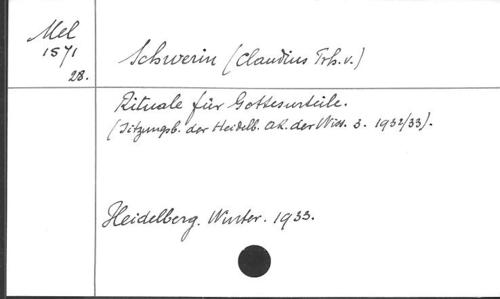 Mel
1571
28.
Schwerin (Claudius Frh. v.)
Rituale für Gottesurteile.
(Sitzungsb. der Heidelb. Ak. der Wiss. 3. 1932/33).
Heidelberg. Winter. 1933.